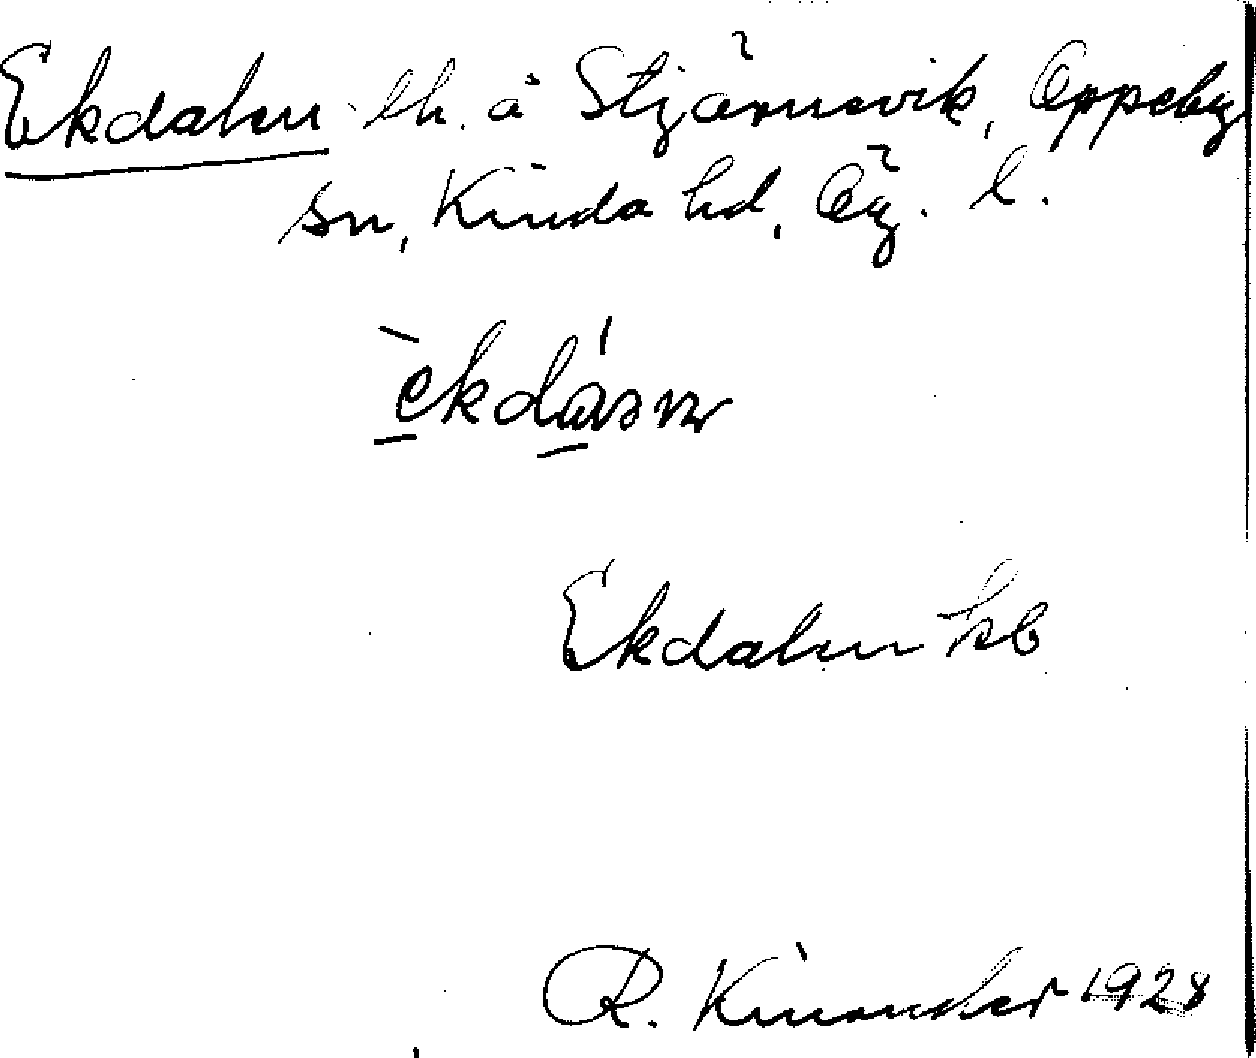 Ekdalen lh. å Stjärnevik, Oppeby
sn, Kinda hd, Ög. l.
Ekdalen kb
R. Kinander 1928